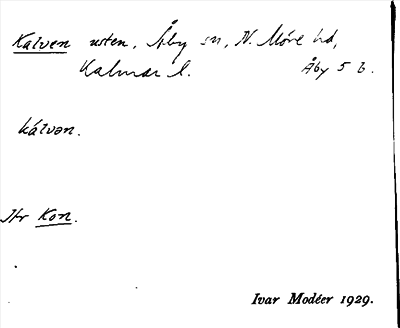 Kalven usten, Åby sn, N. Möre hd,
Kalmar l. Åby 5 b.
kálvən.
Jfr Kon.
Ivar Modéer 1929.